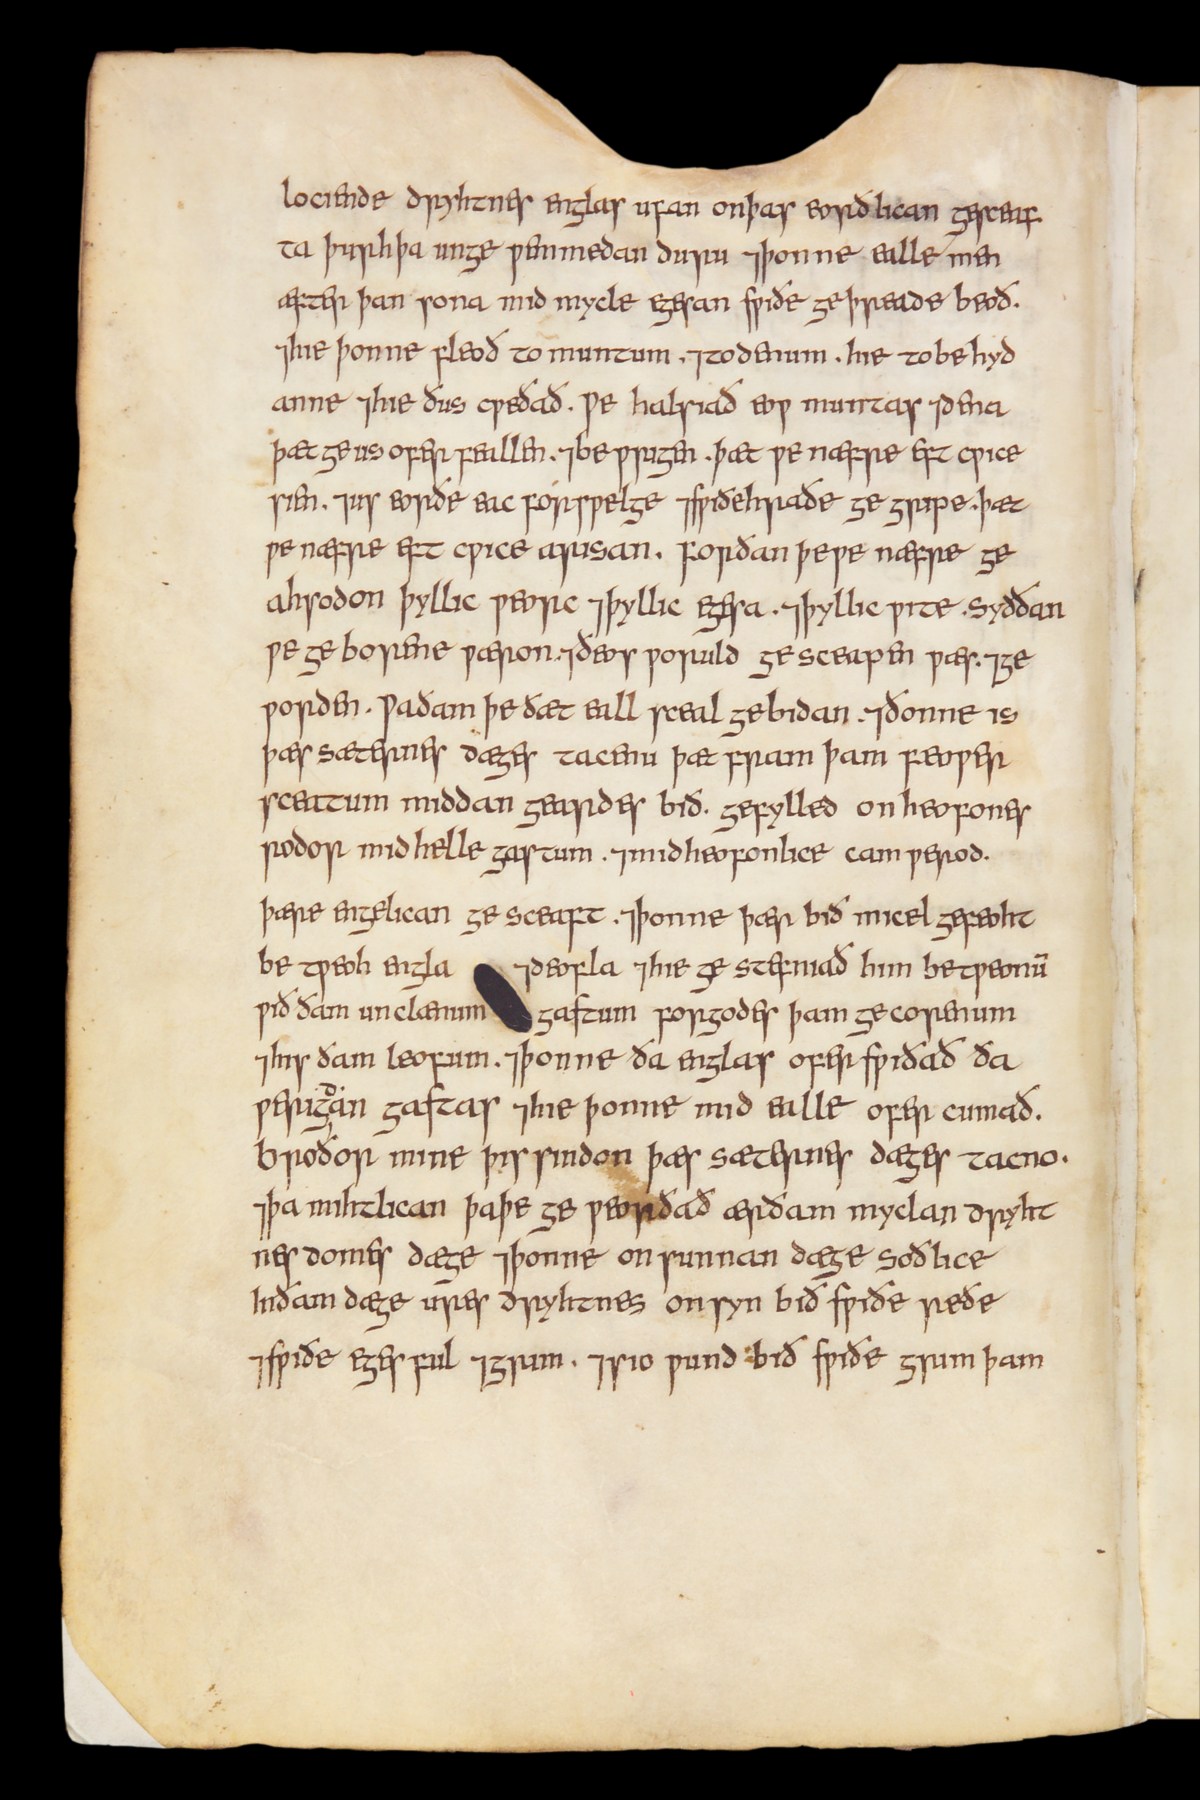 lociende dryhtnes englas ufan onþas eorðlican gesceaf
ta þurhþa unge ƿemmedan duru ⁊þonne ealle men
æfter þan sona mid mycle egesan sƿiðe ge þreade beoð.
⁊hie þonne fleoð to muntum. ⁊todenum. hie tobehyd
anne ⁊hie ðus cƿeðað. Ƿe halsiað eoƿ muntas ⁊dena
þæt ge us ofer feallen. ⁊be ƿrigen. þæt ƿe næfre eft cƿice
sien. ⁊us eorðe eac forsƿelge ⁊sƿiðehraðe ge gripe. þæt
ƿe næfre eft cƿice arisan. forðan þeƿe næfre ge
ahsodon þyllic ƿeorc ⁊þyllic egesa. ⁊þyllic ƿite. syððan
ƿe ge borene ƿæron. ⁊ðeos ƿoruld ge sceapen ƿæs. ⁊ge
ƿorden. Ƿaðam þe ðæt eall sceal gebidan. ⁊ðonne is
þæs sæternes dæges tacenu þæt fram þam feoƿer
sceatum middan geardes bið. gefylled on heofones
rodor mid helle gastum. ⁊mid heofonlice camƿerod.
þære engelican ge sceaft. ⁊þonne þær bið micel gefeoht
be tƿeoh engla ⁊deofla ⁊hie ge stefniað him betƿeonū
ƿið ðam unclænum gastum for godes þam gecorenum
⁊his ðam leofum. ⁊þonne ða englas ofer sƿiðað ða
ƿerigdan gastas ⁊hie þonne mid ealle ofer cumað.
broðor mine þis sindon þæs sæternes dæges tacno.
⁊þa mihtlican þaþe ge ƿeorðað ærðam myclan dryht
nes domes dæge ⁊þonne on sunnan dæge soðlice
inðam dæge ures dryhtnes onsyn bið sƿiðe reðe
⁊sƿiðe eges ful ⁊grim. ⁊sio ƿund bið sƿiðe grum þam